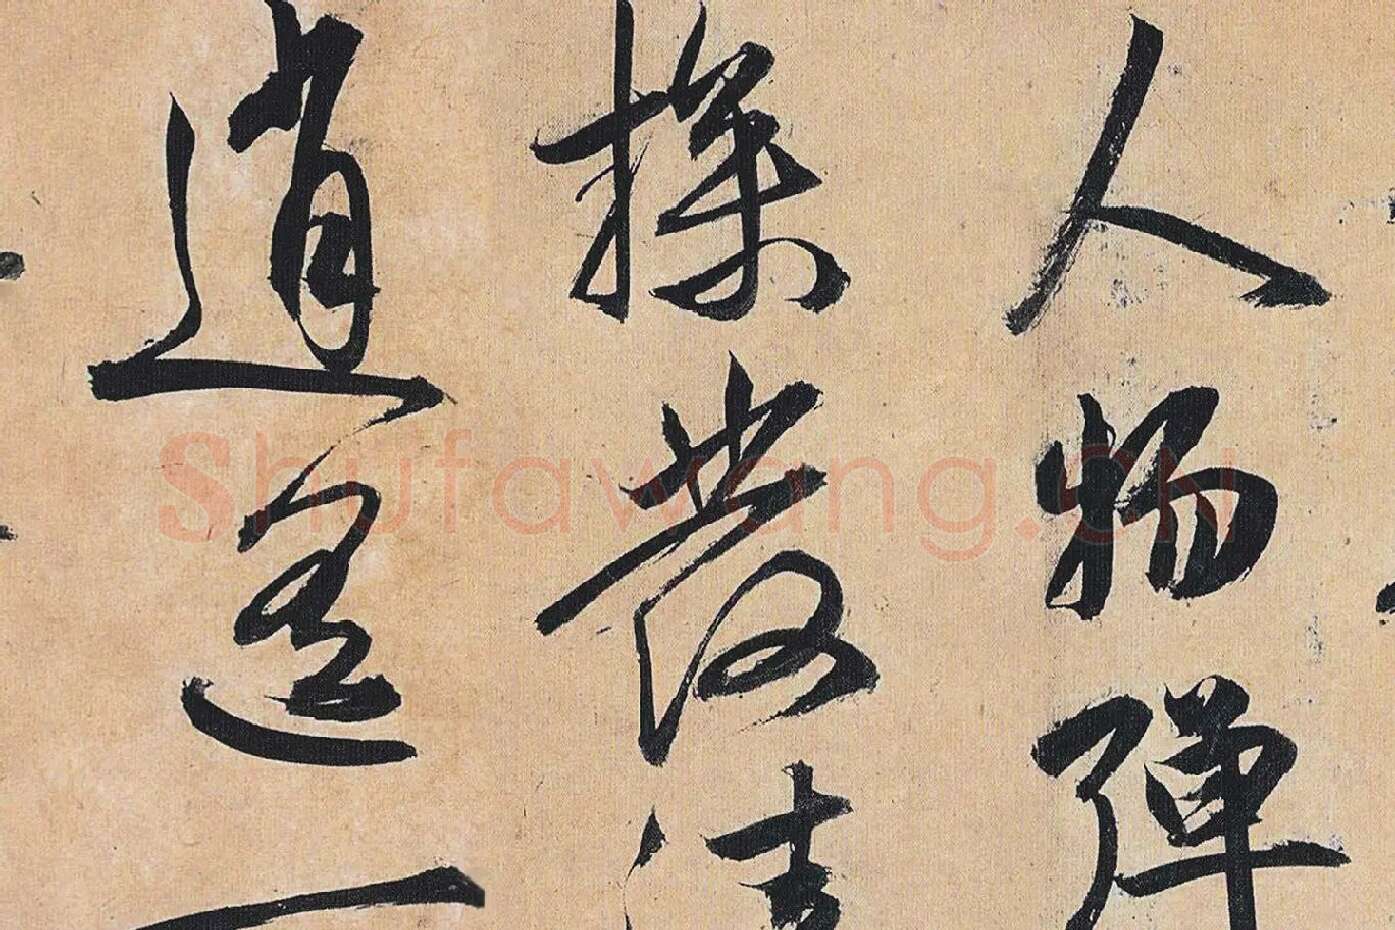 人物彈
操發清
逍遙一
Shufawang.CN